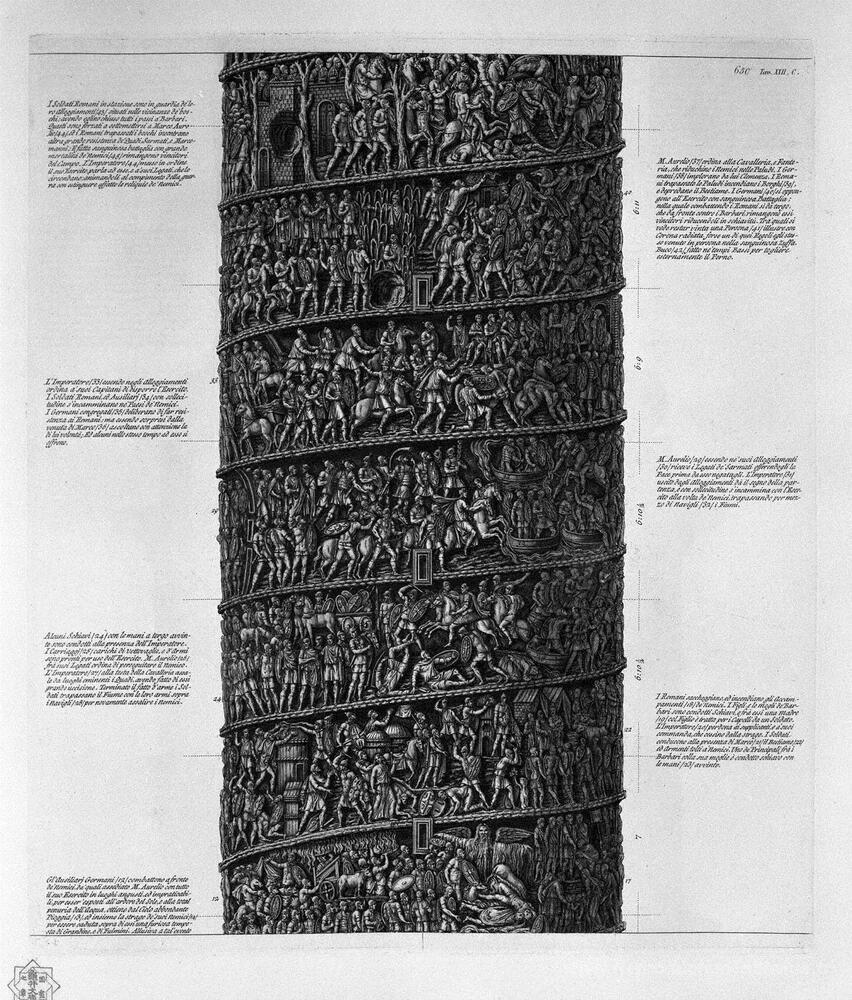 650 Tav. XIII. C.
I Soldati Romani in stazione sono in guardia de' lo-
ro alloggiamenti /43/ situati nelle vicinanze de' bos-
chi: avendo eglino chiuso tutti i passi a' Barbari.
Questi sono forzati a sottomettersi a Marco Aure-
lio /44/, ed i Romani trapassati i boschi incontrano
altra grande resistenza di Quadi, Sarmati, e Marco-
manni: E fatta sanguinosa battaglia con grande
mortalità de' Nemici /45/ rimangono vincitori
del Campo. L'Imperatore /44/ messo in ordine
il suo Esercito parla ad esso, e a' suoi Legati, che lo
circondano, animandoli al compimento della guer-
ra con estinguere affatto le reliquie de' Nemici.
M. Aurelio /37/ ordina alla Cavalleria, e Fante-
ria, che riduchino i Nemici nelle Paludi. I Ger-
mani /38/ implorano da lui Clemenza. I Roma-
ni trapassate le Paludi incendiano i Borghi /39/,
e depredano il Bestiame. I Germani /40/ si oppon-
gono all'Esercito con sanguinosa Battaglia;
nella quale combattendo i Romani sì da tergo,
che da fronte contro i Barbari rimangono essi
vincitori riducendoli in ischiavitù. Tra' quali si
vede restar vinta una Persona /41/ illustre con
Corona radiata, forse un di quei Regoli egli stes-
so venuto in persona nella sanguinosa Zuffa.
Buco /42/ fatto ne' tempi Bassi per togliere
esternamente il Perno.
42
L'Imperatore /33/ essendo negli alloggiamenti
ordina a' suoi Capitani di disporre l'Esercito.
I Soldati Romani, ed Ausiliarj /34/ con solleci-
tudine s'incamminano ne' Paesi de' Nemici.
I Germani congregati /35/ deliberano di far resi-
stenza ai Romani; ma essendo sorpresi dalla
venuta di Marco /36/ ascoltano con attenzione la
di lui volontà; Ed alcuni nello stesso tempo ad esso si
offrono.
33
M. Aurelio /29/ essendo ne' suoi alloggiamenti
/30/ riceve i Legati de' Sarmati offerendogli la
Pace prima da esso negatagli. L'Imperatore /31/
uscito dagli Alloggiamenti dà il segno della par-
tenza, e con sollecitudine s'incammina con l'Eser-
cito alla volta de' Nemici, trapassando per mez-
zo di Navigli /32/ i Fiumi.
29
Alcuni Schiavi /24/ con le mani a tergo avvin-
te sono condotti alla presenza dell'Imperatore.
I Carriaggi /25/ carichi di vettovaglie, e d'Armi
sono pronti per uso dell'Esercito. M. Aurelio /26/
frà suoi Legati ordina di perseguitare il Nemico.
L'Imperatore /27/ alla testa della Cavalleria assa-
le da luoghi eminenti i Quadi, avendo fatto di essi
grande uccisione. Terminato il fatto d'armi i Sol-
dati trapassano il Fiume con le loro armi sopra
i Navigli /28/ per novamente assalire i nemici.
24
I Romani saccheggiano, ed incendiano gli Accam-
pamenti /18/ de' Nemici. I Figli, e le mogli de' Bar-
bari sono condotti Schiavi, e frà essi una Madre
/19/ col Figlio è tratta per i Capelli da un Soldato.
L'Imperatore /20/ perdona ai supplicanti, e a' suoi
commanda, che cessino dalla strage. I Soldati
conducono alla presenza di Marco /21/ il Bestiame /22/
ed Armenti tolti a' Nemici. Uno de' Principali frà i
Barbari colla sua moglie è condotto schiavo con
le mani /23/ avvinte.
22
17
Gl'Ausiliarj Germani /12/ combattono a fronte
de' Nemici, da' quali assediato M. Aurelio con tutto
il suo Esercito in luoghi angusti, ed impraticabi-
li, per esser esposti all'ardore del Sole, e alla total
penuria dell'Acqua, ottiene dal Cielo abbondante
Pioggia /13/, ed insieme la strage de' suoi Nemici /14/
per essere caduta sopra di essi una furiosa tempe-
sta di Grandine, e di Fulmini. Allusiva a tal'evento
12
7